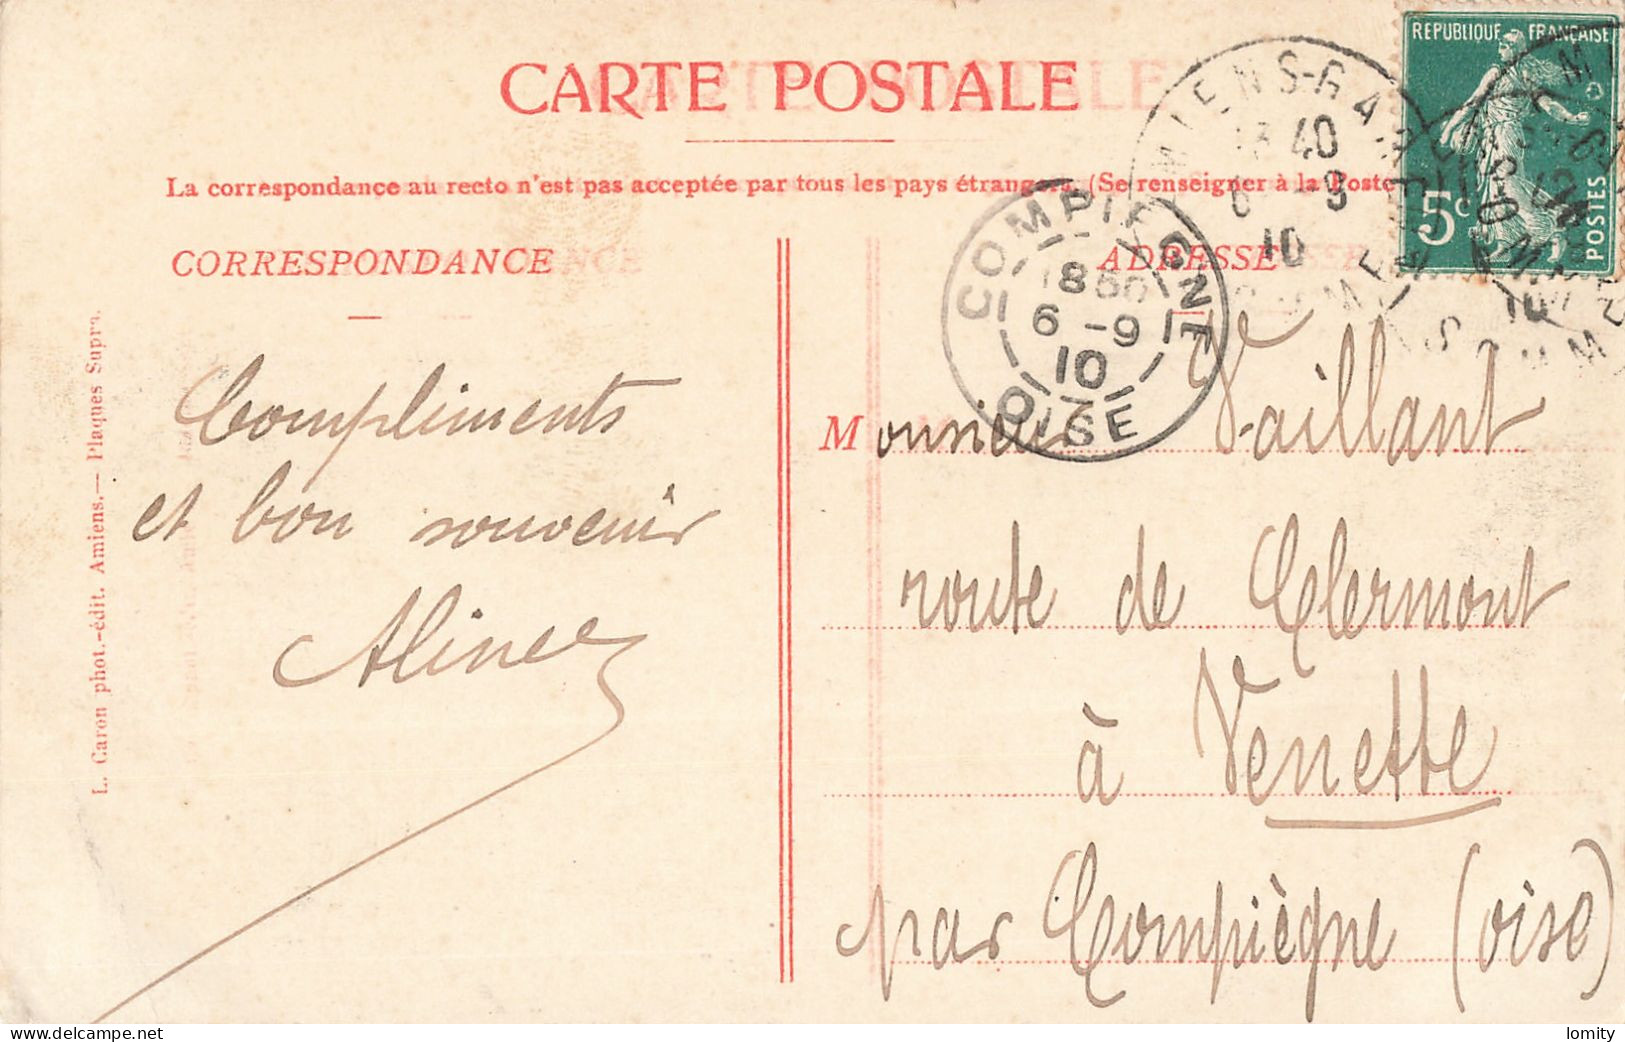 CARTE POSTALE
La correspondance au recto n'est pas acceptée par tous les pays étrangers. (Se renseigner à la Poste
CORRESPONDANCE
ADRESSE
REPUBLIQUE FRANÇAISE
5c
POSTES
AMIENS-GARE
13 40
6 -9
10
SOMME
COMPIEGNE
18
6 -9
10
OISE
Compliments
et bon souvenir
Aline
Monsieur Vaillant
route de Clermont
à Venette
par Compiègne (oise)
L. Caron phot.-édit. Amiens.— Plaques Supra.
delcampe.net
lomity